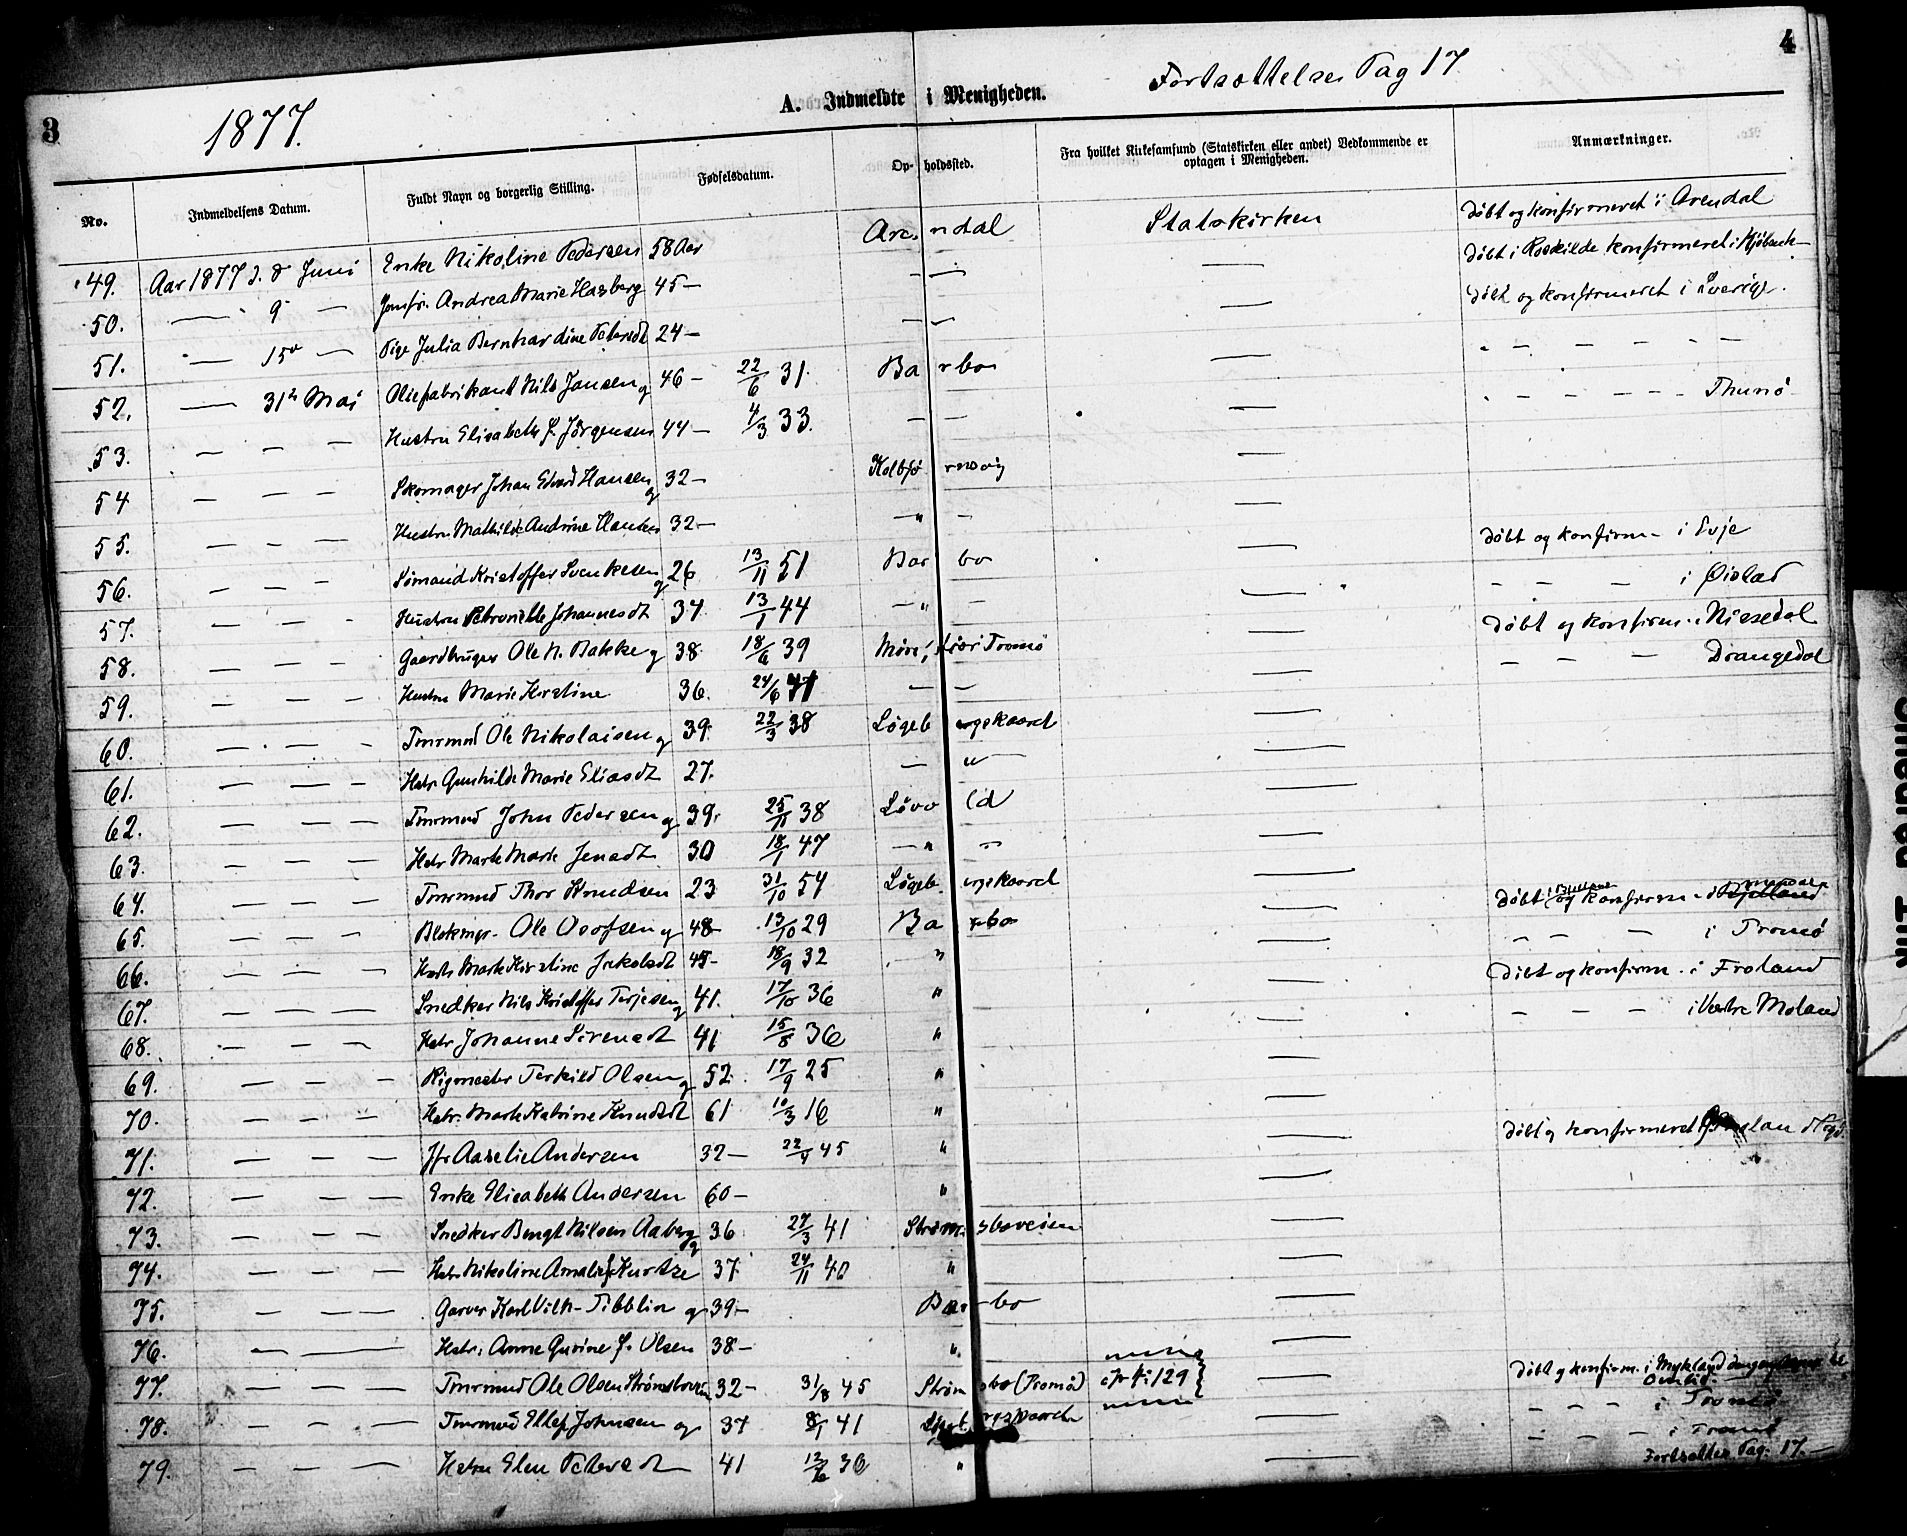 3
1877.
A. Indmeldte i Menigheden.
Fortsættelse Pag 17
4
No. Indmeldelsens Datum. Fuldt Navn og borgerlig Stilling. Fødselsdatum. Opholdssted. Fra hvilket Kirkesamfund (Statskirken eller andet) Vedkommende er optagen i Menigheden. Anmærkninger.
49. Aar 1877 d. 8 Juni Enke Nikoline Pedersen 58 Aar Arendal Statskirken døbt og konfirmeret i Arendal
50. — 9 — Jomfr. Andrea Marie Hasberg 45 — — — døbt i Roskilde konfirmeret i
51. — 15 — Pige Julia Bernhardine Petersdt 24 — — — døbt og konfirmeret i Sverige.
52. — 31 Mai Oliefabrikant Nils Jansen og 46 — 22/6 31. Barbo — - - - - - -
53. — — — Hustru Elisabeth f. Jørgensen 44 — 4/3 33. — — — - - - - - - Thunø
54 — — — Skomager Johan Edvard Hansen og 32 — Kolbjørnsvig —
55. — — — Hustru Mathilde Andrine Hansen 32 — — „ — —
56. — — — Sømand Kristoffer Svenksen og 26 13/11 51 Barbo — døbt og konfirm - i Evje
57. — — — Hustru Petronelle Johannesdt 34. 13/1 44 — „ — — — — — i Øislad
58. — — — Gaardbruger Ole N. Bakke og 38 18/6 39 Tromø — døbt og konfirm. i Nissedal
59. — — — Hustru Marie Kirstine 36. 24/6 41 — — — — — — Drangedal
60. — — — Tmrmnd Ole Nikolaisen og 39. 22/3 38 Løgebergskaaret —
61. — — — Hstr. Gunhilde Marie Eliasdt 27. — „ — —
62. — — — Tmrmnd John Pedersen og 39. 25/11 38 Løvold —
63. — — — Hstr Marte Marie Jensdt. 30 18/1 47 — „ —
64. — — — Tmrmnd Thor Knudsen 23 31/10 54 Løgebergskaaret —
65. — — — Blokmgr. Ole Oolfsen og 48 13/10 29 Barbo — døbt og konfirm - i
66. — — — Hustr Marte Kirstine Jakobsdt 45 - 18/9 32 — „ — — — — i Tromø
67. — — — Snedker Nils Kristoffer Terjesen og 41. 17/10 36 „ — døbt og konfirm. i Froland
68. — — — Hstr Johanne Sørensdt 41 15/8 36 „ — — — — i Vestre Moland
69. — — — Rigmester Terkild Olsen og 52. 17/9 25 „ —
70. — — — Hstr. Marte Katrine Knudsdt 61 10/3 16 „ —
71. — — — Jfr Aaselie Andersen 32 — 22/4 45 „ — døbt og konfirmeret
72. — — — Enke Elisabeth Andersen 60 — „ —
73. — — — Snedker Bengt Nilsen Aaberg og 36 27/3 41 Strømsboveien —
74. — — — Hstr Nikoline Amalie f. Kurtze 37 24/11 40 „ —
75. — — — Garver Karl Vilh- Tibblin og 39 — Barbo —
76. — — Hstr. Anne Gurine f. Olsen 38 — „ —
77. — — — Tmrmnd Ole Olsen Strømsboveien 32 — 31/8 45 Strømsbo (Tromø) 129 — døbt og konfirm. i Mykland
78. — — — Tmrmnd Ellef Johnsen og 37 8/1 41 — — — — i Tromø
79. — — — Hstru Elen Petersdt 41 12/6 36 „ — — — — i Tromø
Fortsættes Pag: 17. —